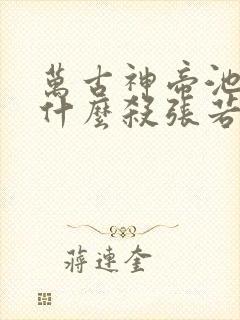 萬古神帝池
什麼殺張若
蔣連奎